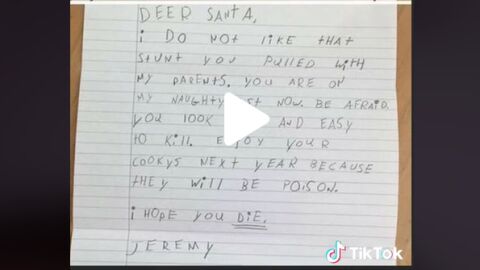 DEER SANTA,
i DO NOT liKE tHAt
StUNt YOU PULLED WitH
MY PARENTS. YOU ARE ON
MY NAUGHTY NOW. BE AFRAiD.
YOU lOOK AND EASY
tO Kill. ENJOY YOUR
COOKYS NEXt YEAR BECAUSE
tHEY Will BE POiSON.
i HOPE YOU DiE.
JEREMY
TikTok